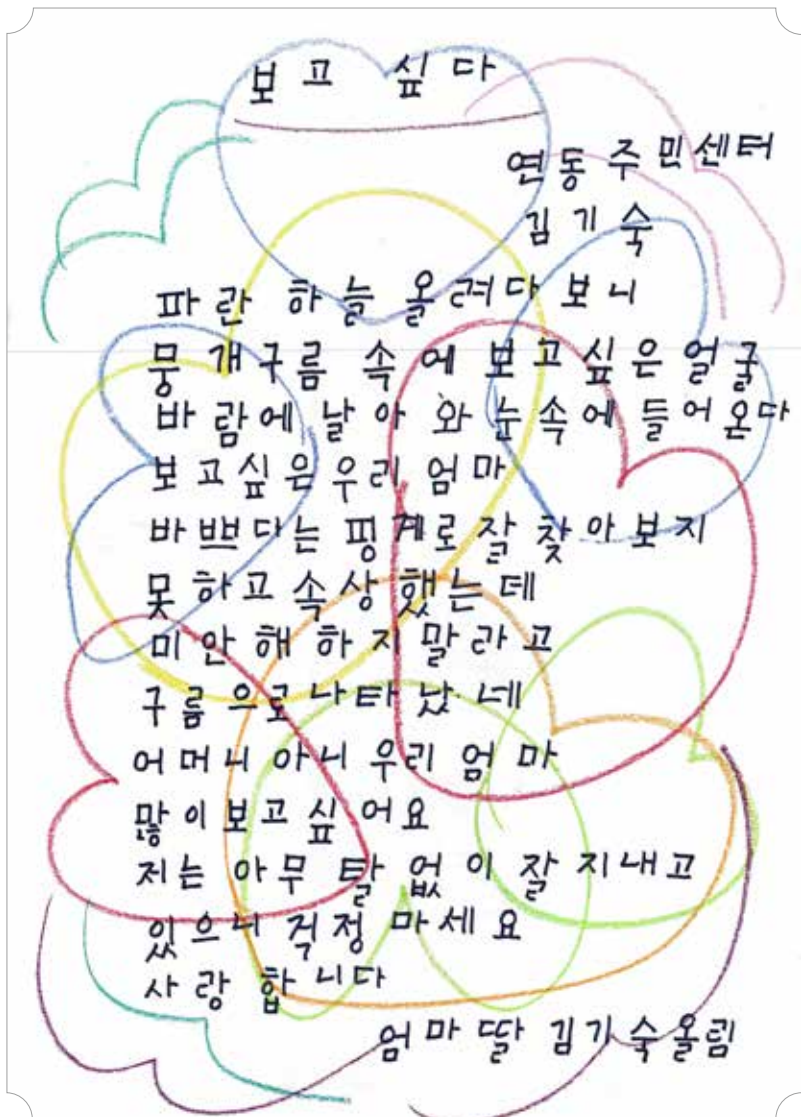 보고 싶다
연동주민센터
김기숙
파란 하늘 올려다보니
뭉개구름 속에 보고싶은 얼굴
바람에 날아 와 눈속에 들어온다
보고싶은우리 엄마
바쁘다는 핑계로 잘 찾아보지
못하고 속상했는데
미안해하지 말라고
구름으로나타났네
어머니 아니 우리 엄마
많이보고싶어요
저는 아무 탈 없이 잘 지내고
있으니 걱정 마세요
사랑 합니다
엄마 딸 김기숙올림